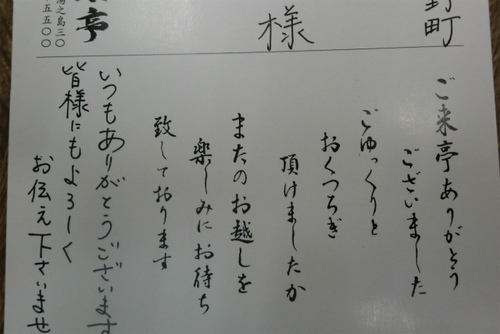 野町
様
ご来亭ありがとう
ございました
ごゆっくりと
おくつろぎ
頂けましたか
またのお越しを
楽しみにお待ち
致しております
いつもありがとうございます
皆様にもよろしく
お伝え下さいませ
亭
湯之島三〇
五五〇〇